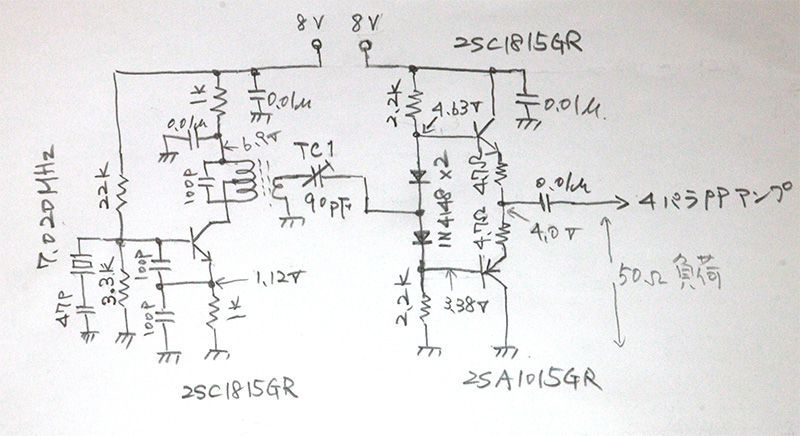 8V
8V
2SC1815GR
1K
0.01μ
2.2K
4.63V
0.01μ.
0.01μ
6.9V
TC1
100P
90PF
22K
1N4148×2
47Ω
0.01μ
4パラPPアンプ
7.020MHz
47Ω
4.0V
100P
1.12V
3.3K
47P
100P
1K
2.2K
3.38V
50Ω負荷
2SC1815GR
2SA1015GR